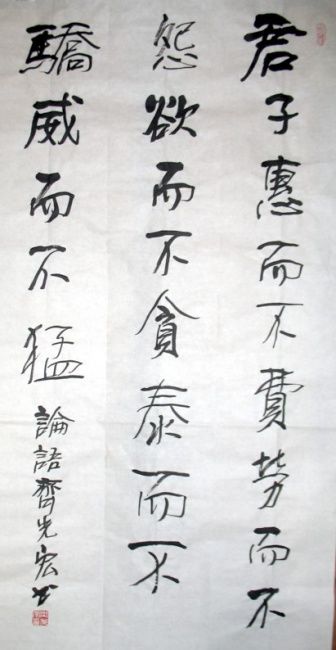 君子惠而不費勞而不
怨欲而不貪泰而不
驕威而不猛
論語齊光宏書